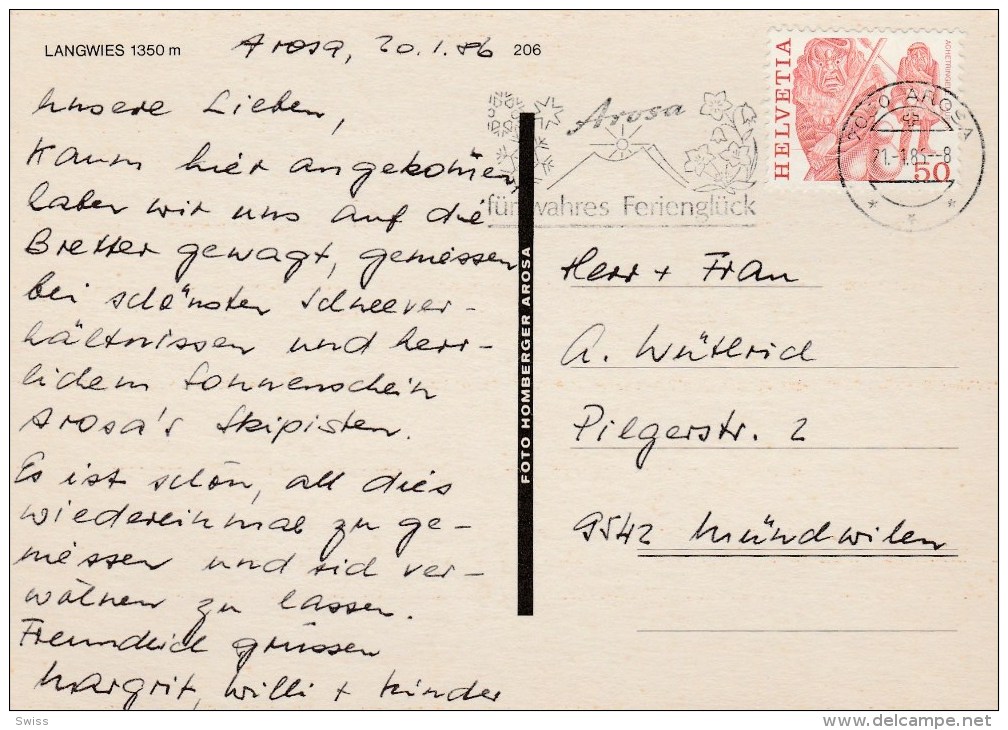 LANGWIES 1350 m
Arosa, 20.1.86
206
Unsere Lieben,
Kaum hier angekommen
haben wir uns auf die
Bretter gewagt, geniessen
bei schönsten Schneever-
hältnissen und herr-
lichem Sonnenschein
Arosa's Skipisten.
Es ist schön, all dies
wiedereinmal zu ge-
niessen und sich ver-
wöhnen zu lassen.
Freundlich grüssen
Margrit, Willi + Kinder
FOTO HOMBERGER AROSA
Arosa
für wahres Ferienglück
HELVETIA
50
7050 AROSA
21.-1.86--8
Herr + Frau
A. Wüthrich
Pilgerstr. 2
9542 Münchwilen
Swiss
www.delcampe.net